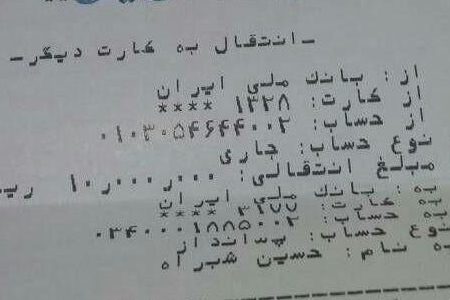 - انتقال به کارت دیگر -
از: بانک ملی ایران
از کارت: ۱۳۲۸ ****
از حساب: ۰۱۰۳۰۵۴۶۴۴۰۰۲
نوع حساب: جاری
مبلغ انتقالی: ۱۰٫۰۰۰٫۰۰۰ ری
به: بانک ملی ایران
به کارت: ۳۲۷۷ ****
به حساب: ۰۳۴۰۰۰۱۸۸۵۰۰۲
نوع حساب: پس‌انداز
به نام: حسین شیر اه